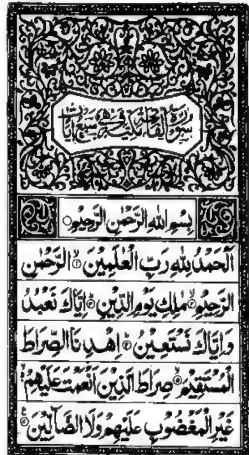 سورة الفاتحة مكية وهي سبع آيات
بِسْمِ اللهِ الرَّحْمٰنِ الرَّحِيْمِ
اَلْحَمْدُ لِلّٰهِ رَبِّ الْعٰلَمِيْنَ ۙ۱ الرَّحْمٰنِ
الرَّحِيْمِ ۙ۲ مٰلِكِ يَوْمِ الدِّيْنِ ۳ اِيَّاكَ نَعْبُدُ
وَاِيَّاكَ نَسْتَعِيْنُ ۴ اِهْدِنَا الصِّرَاطَ
الْمُسْتَقِيْمَ ۙ۵ صِرَاطَ الَّذِيْنَ اَنْعَمْتَ عَلَيْهِمْ ۙ۶
غَيْرِ الْمَغْضُوْبِ عَلَيْهِمْ وَلَا الضَّآلِّيْنَ ۷